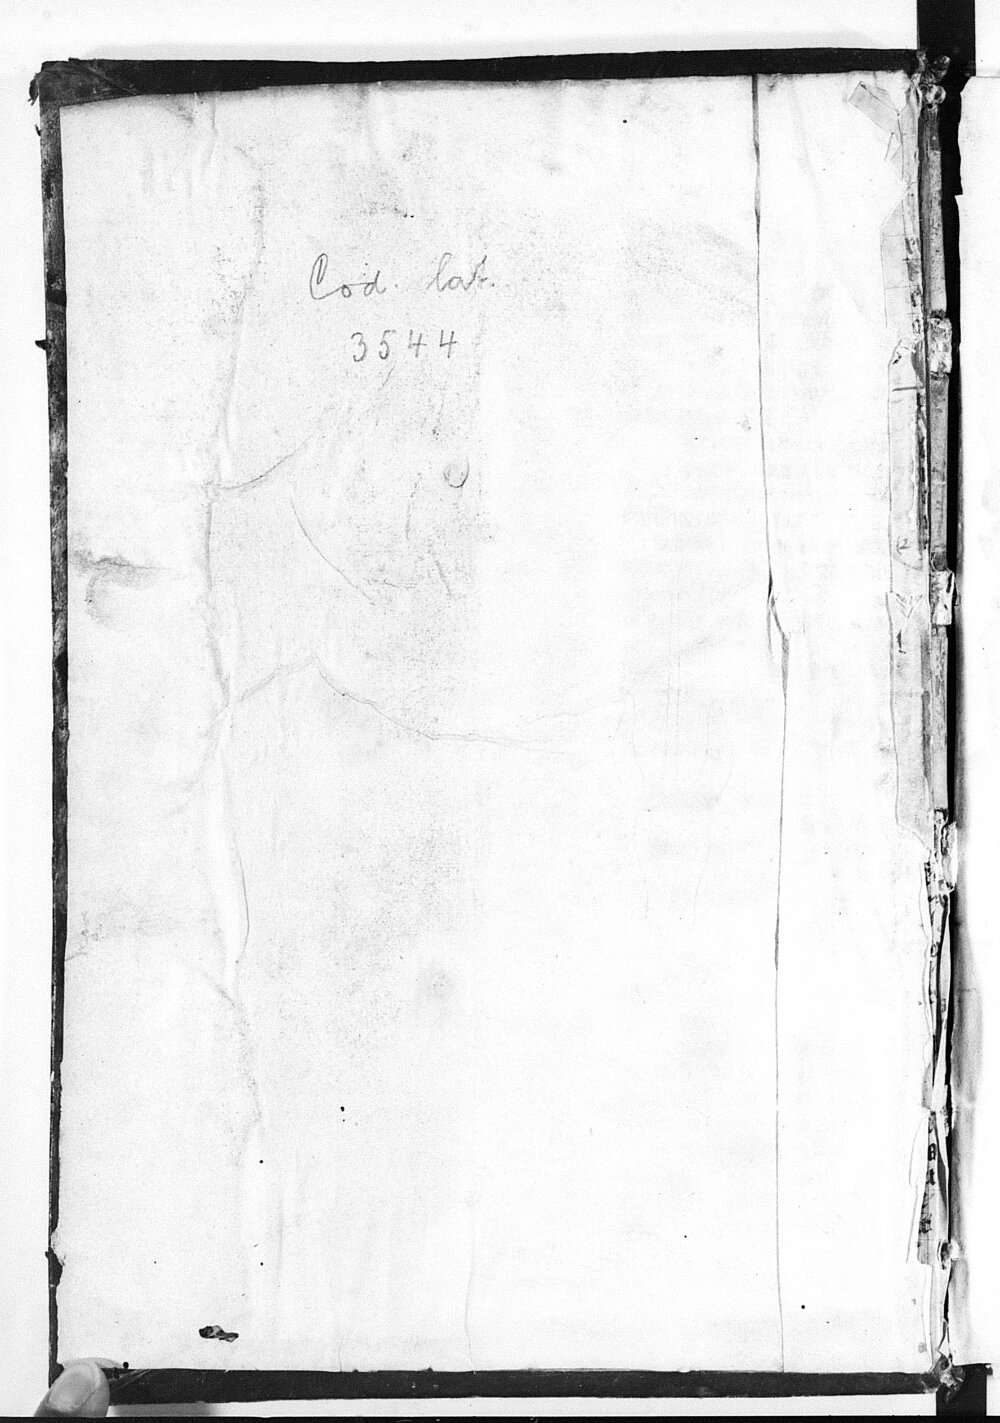 Cod. lat.
3544